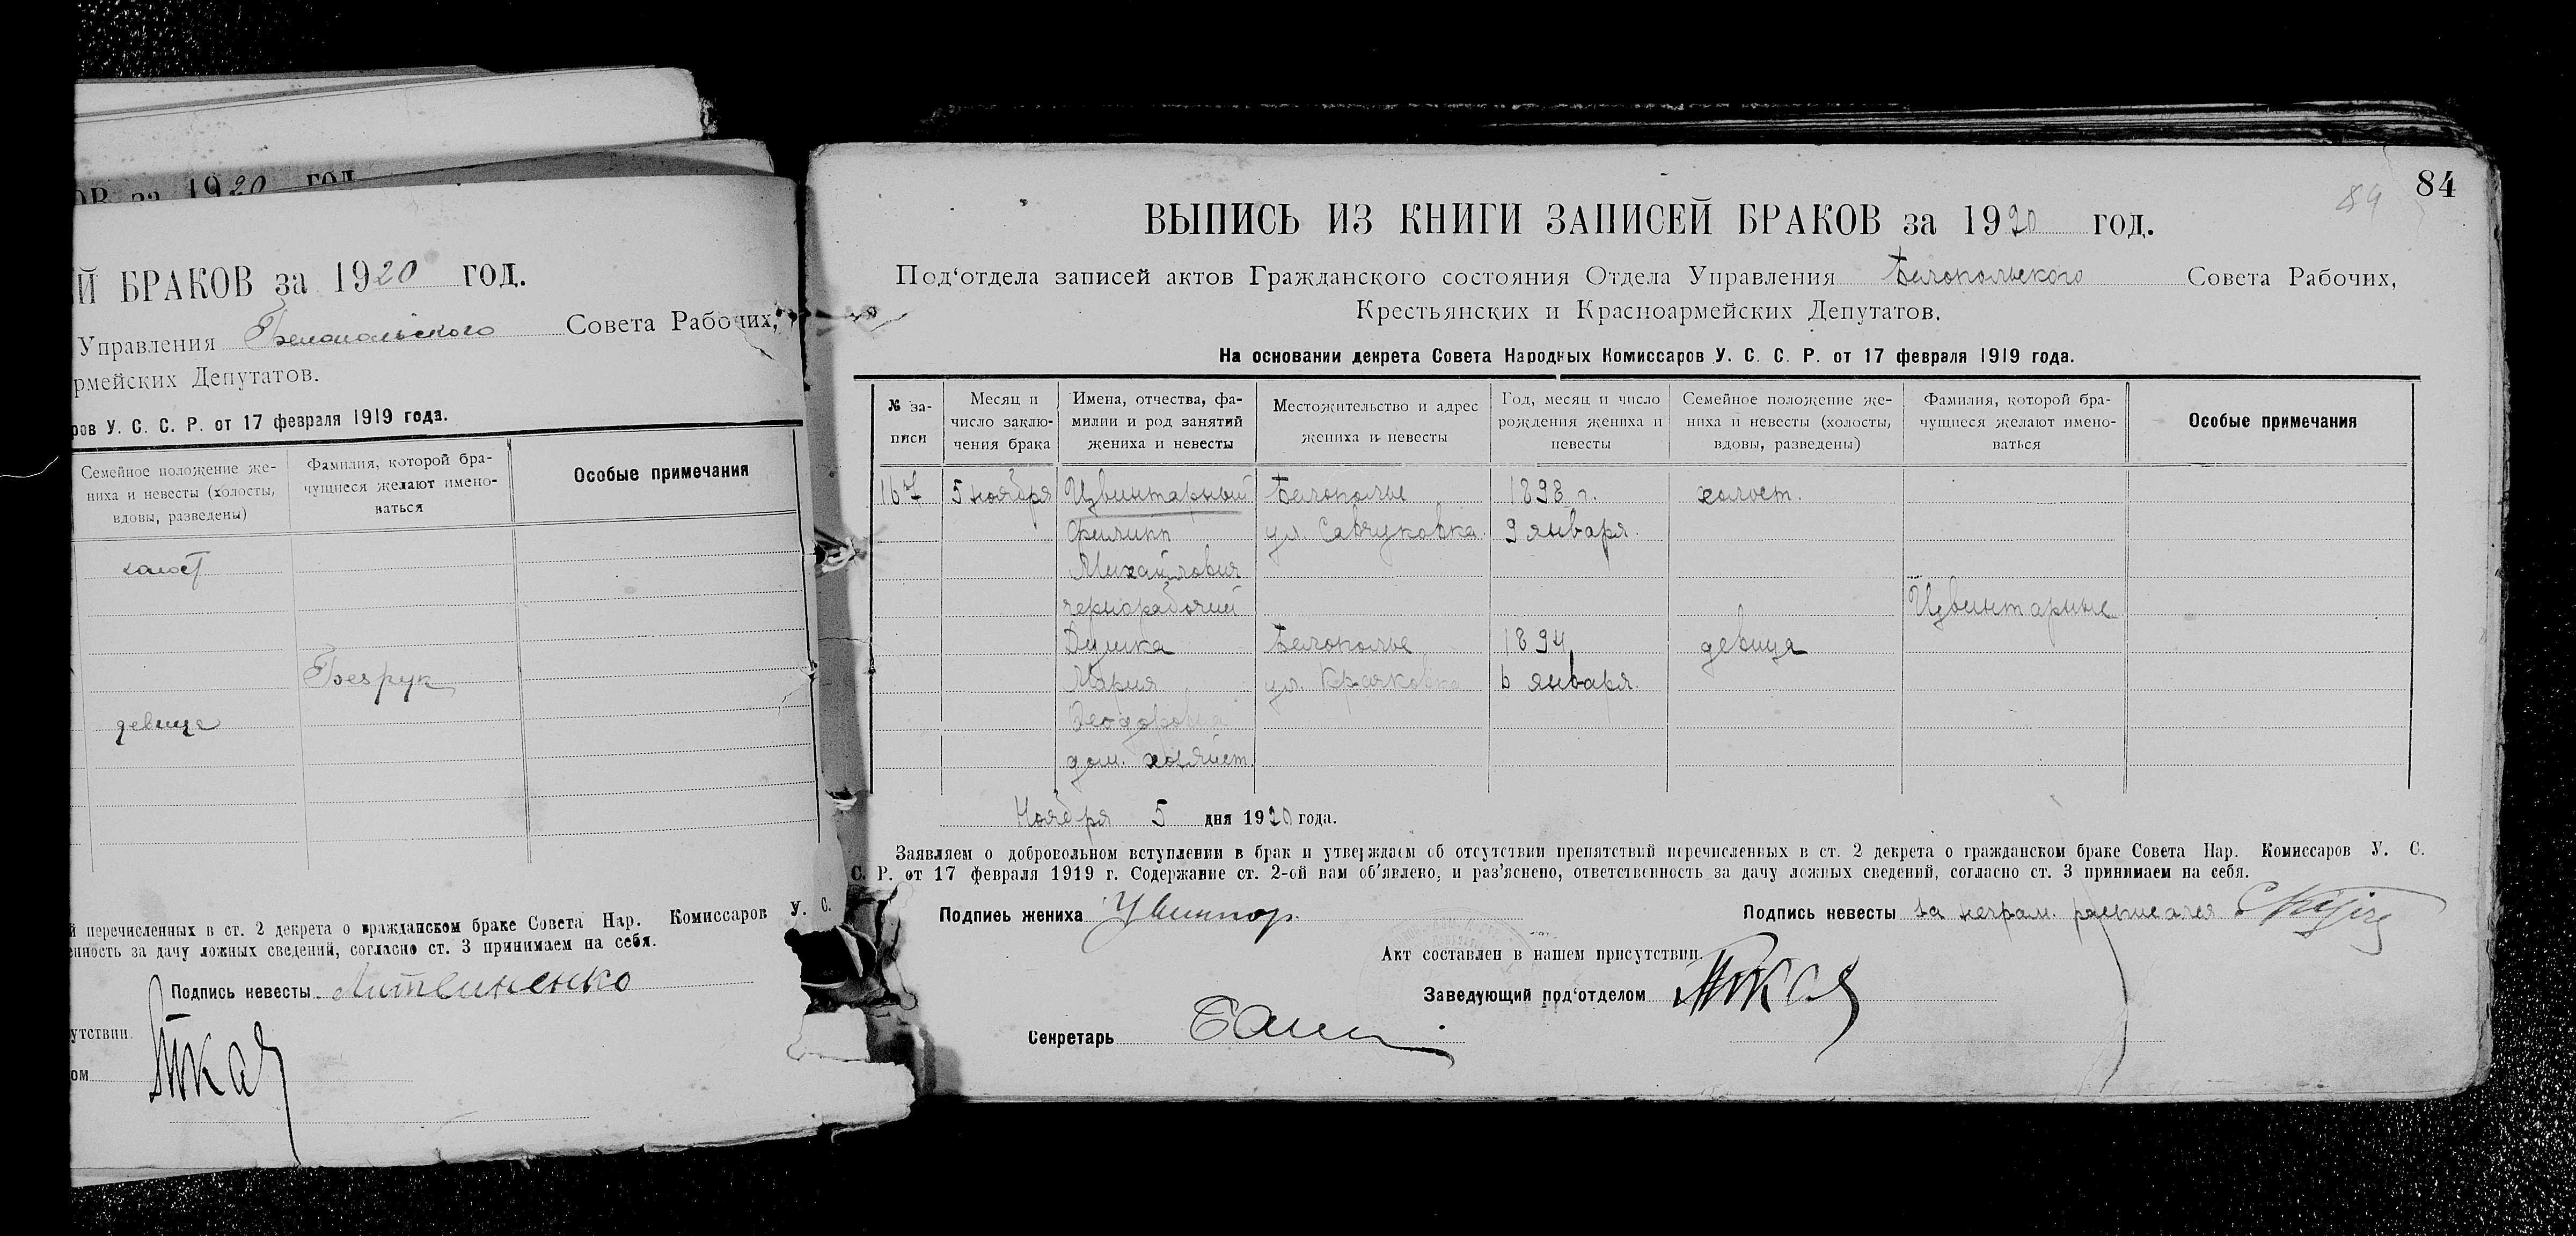 ОВ за 1920 год
Й БРАКОВ за 1920 год.
Управления Белопольского Совета Рабочих,
рмейских Депутатов.
ров У. С. С. Р. от 17 февраля 1919 года.
Семейное положение же-
ниха и невесты (холосты,
вдовы, разведены)
Фамилия, которой бра-
чущиеся желают имено-
ваться
Особые примечания
холост
Безрук
девица
й перечисленных в ст. 2 декрета о гражданском браке Совета Нар. Комиссаров У. С.
енность за дачу ложных сведений, согласно ст. 3 принимаем на себя.
Подпись невесты Литвиненко
утствии
ом Ткач
84
84
ВЫПИСЬ ИЗ КНИГИ ЗАПИСЕЙ БРАКОВ за 1920 год.
Под‘отдела записей актов Гражданского состояния Отдела Управления Белопольского Совета Рабочих,
Крестьянских и Красноармейских Депутатов.
На основании декрета Совета Народных Комиссаров У. С. С. Р. от 17 февраля 1919 года.
№ за-
писи
Месяц и
число заклю-
чения брака
Имена, отчества, фа-
милии и род занятий
жениха и невесты
Местожительство и адрес
жениха и невесты
Год, месяц и число
рождения жениха и
невесты
Семейное положение же-
ниха и невесты (холосты,
вдовы, разведены)
Фамилия, которой бра-
чущиеся желают имено-
ваться
Особые примечания
5 ноября Цвинтарный Белополье 1898 г. холост.
Филипп ул. Савчуковка 9 января.
Михайлович
чернорабочий Цвинтарные
Белополье 1894 девица
Мария ул. 6 января.
Феодоровна
дом. хозяйст.
Ноября 5 дня 1920 года.
Заявляем о добровольном вступлении в брак и утверждаем об отсутствии препятствий перечисленных в ст. 2 декрета о гражданском браке Совета Нар. Комиссаров У. С.
С. Р. от 17 февраля 1919 г. Содержание ст. 2-ой нам об‘явлено, и раз‘яснено, ответственность за дачу ложных сведений, согласно ст. 3 принимаем на себя.
Подпись жениха Цвинтар.
Подпись невесты за неграм. расписался
Акт составлен в нашем присутствии.
Заведующий под‘отделом Ткач
Секретарь